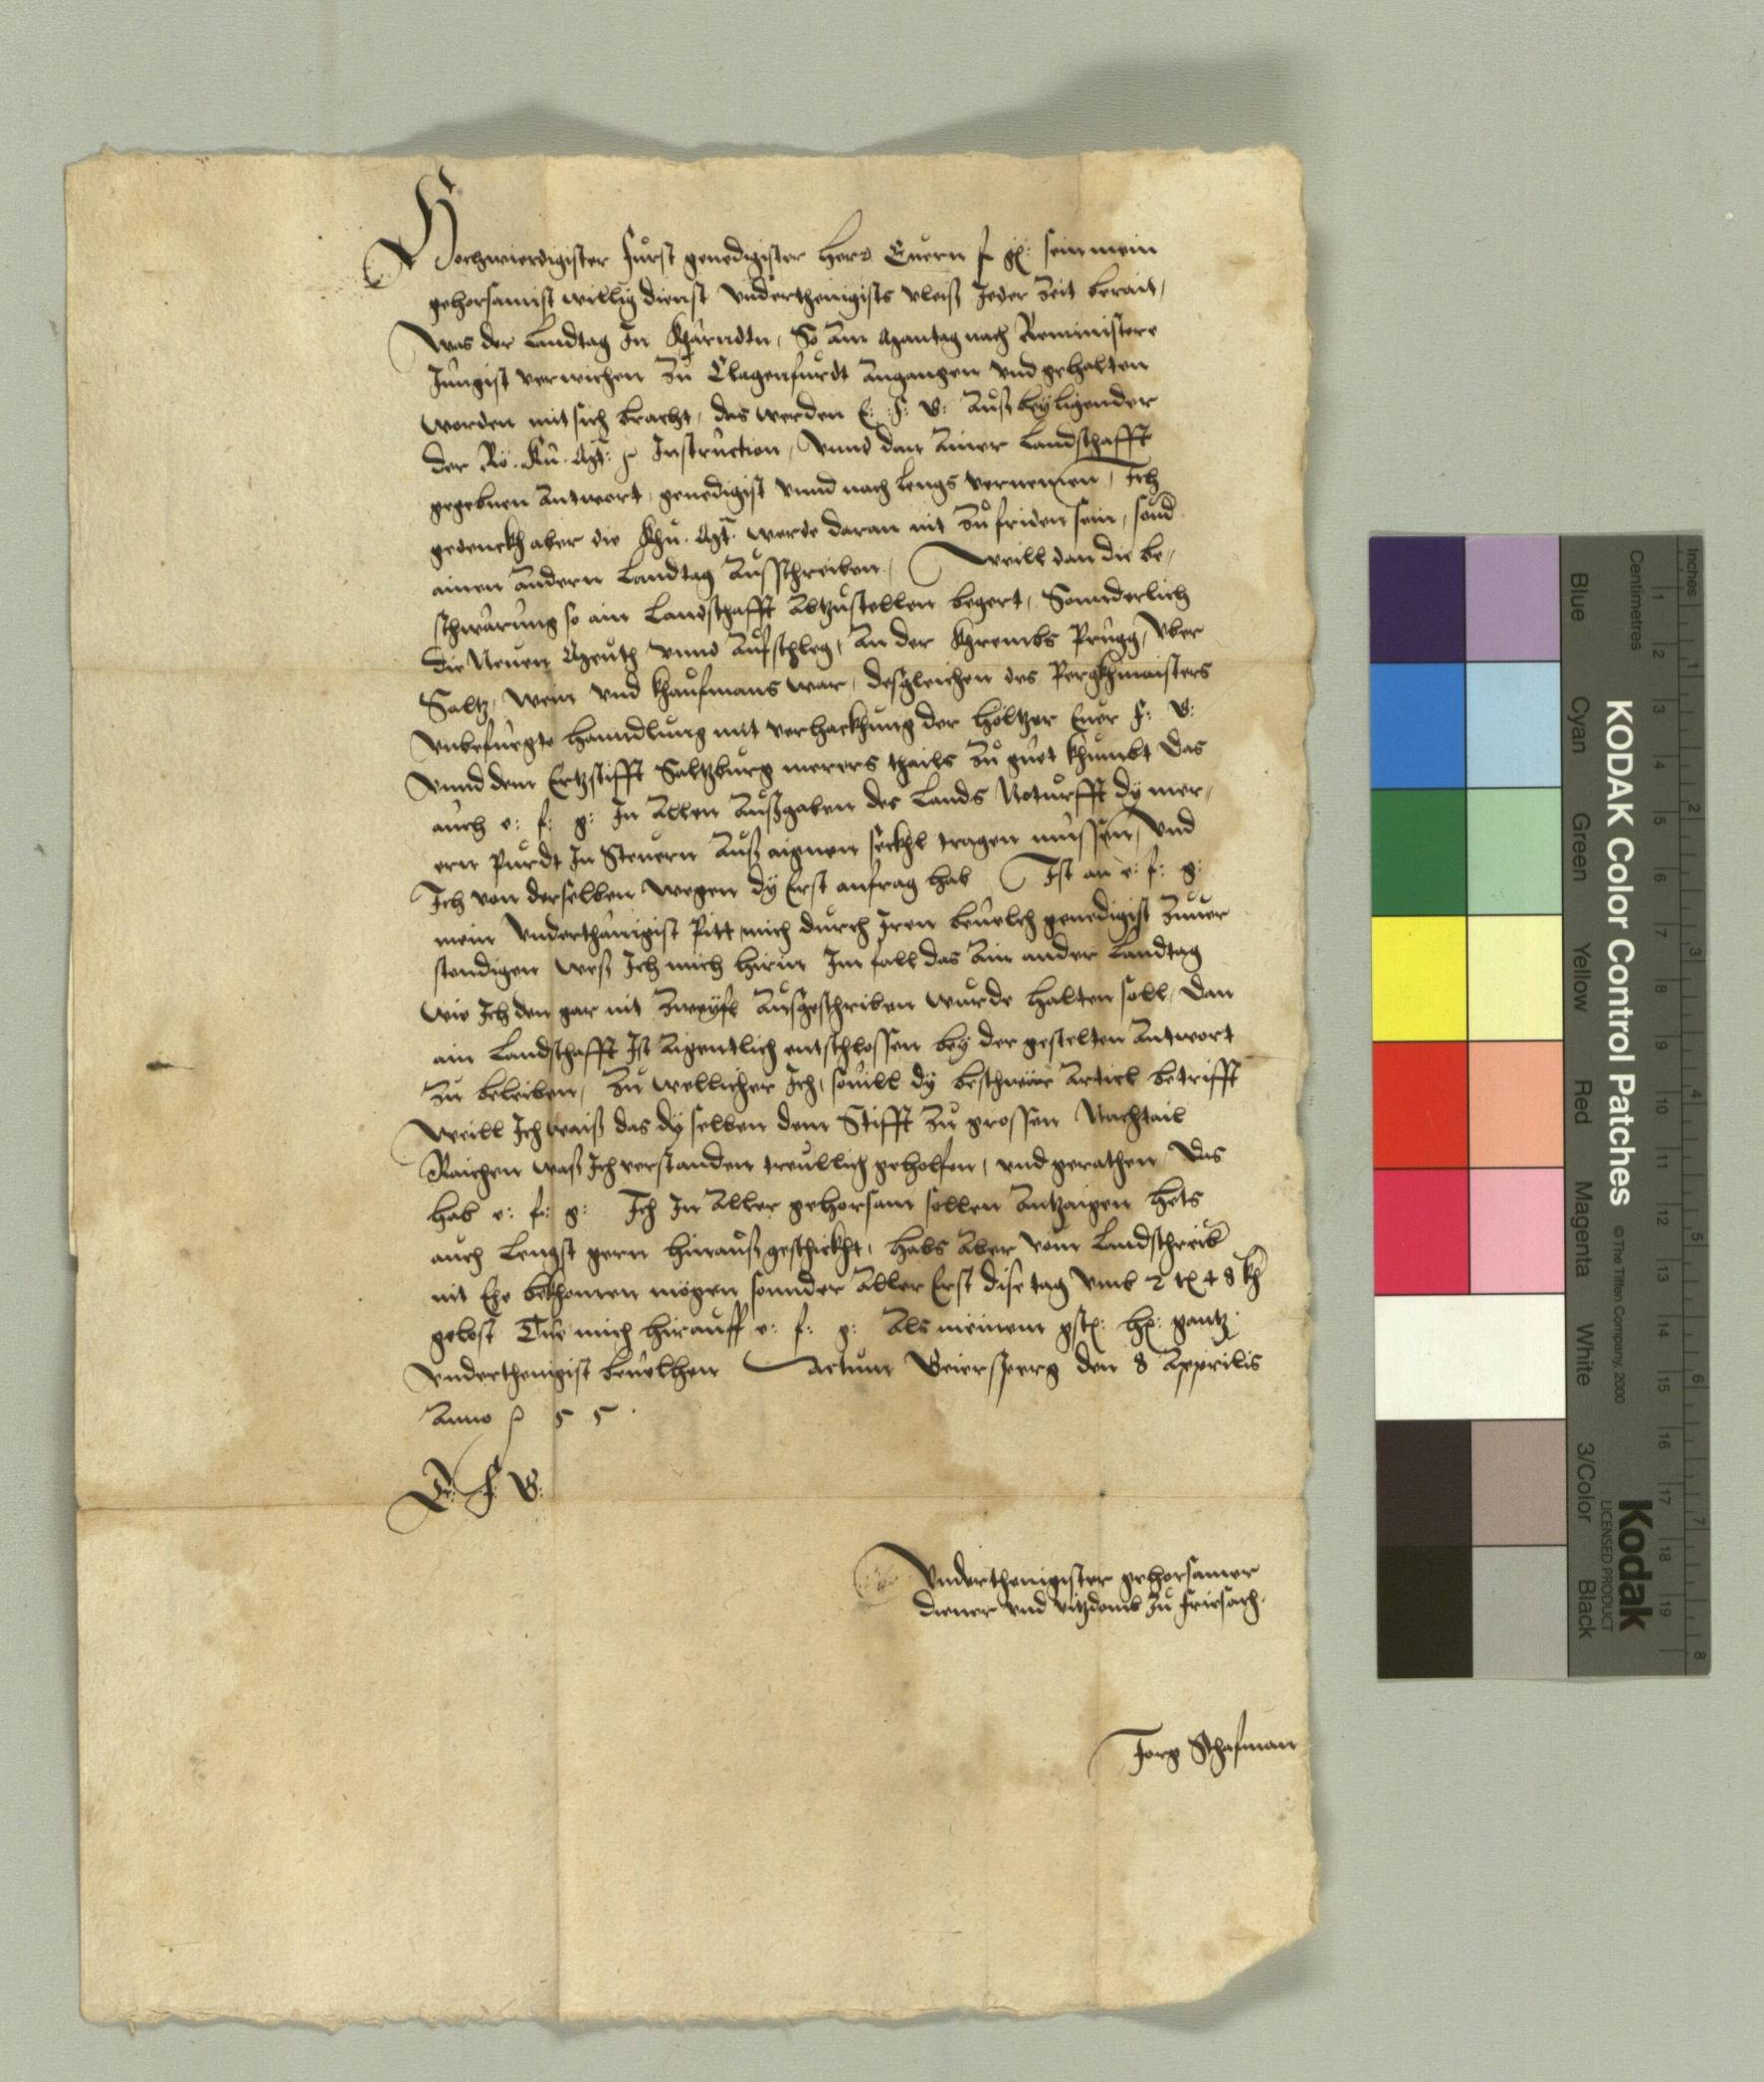 Hochwierdigister Fürst genedigister Herr Euern f g: sein mein
gehorsamist willig dienst vnderthenigists vleiß Jeder Zeit berait,
Was der Landtag In Khärndtn, So am Mantag nach Reministere
Jüngist verwichen Zu Clagenfurdt angangen vnd gehalten
worden mit sich bracht, das werden E: F: G: Auß beyligender
der Rö. Kü. Mt: Instruction, Vnnd dan Ainer Landschafft
gegebnen Antwort, genedigist vnnd nach lengs vernemen, Ich
gedenckh aber die Khü. Mt. werde daran nit Zufriden sein, sond
ainen andern Landtag Ausschreiben, Weill dan die be,
schwärung so ain Landschafft Abtzustellen begert, Sonnderlich
die Neuen Meuth vnnd Aufschleg, An der Khrembs Prugg, Vber
Saltz, Wein vnd khaufmans war, desgleichen des Pergkhmaisters
Vnbefuegte Hanndlung mit verhackhung der höltzer Euer F: G:
Vnnd dem Ertzstifft Saltzburg merers thails Zu guet khumbt das
auch e: f: g: In Allen Außgaben des Lands Noturfft dy mer,
ern purdt In Steuern Auß aignen seckhl tragen müssen, Vnd
Ich von derselben wegen dy Erst anfrag hab Ist an e: f: g:
mein Vnderthänigist Pitt, mich durch Iren beuelch genedigist Zuuer
stendigen weß Ich mich hirin Im fall das Ain ander Landtag
wie Ich den gar nit Zweyfl Ausgeschriben wurde halten soll, Dan
ain Landschafft Ist Aigentlich entschlossen bey der gestelten Antwort
Zu beleiben, Zu wellicher Ich, souill dy beschwär Articl betrifft
Weill Ich waiß das dyselben dem Stifft Zu grossen Nachtail
Raichen waß Ich verstanden treullich geholfen, vnd gerathen, Das
hab e: f: g: Ich In Aller gehorsam sollen Antzaigen hets
auch Lengst gern hinauß geschickht, habs Aber vom Landschreib
nit Ehe bekhomen mögen sonnder Aller Erst dise tag Vmb 2 tl 4 ß kh
gelost Tue mich hirauff e: f: g: Als meinem gst: h: gantz
Vnderthenigist beuelhen Actum Geiersperg den 8 Apprilis
Anno 55.
E: F: G:
Vnderthenigister gehorsamer
diener vnd vitzdomb Zu friesach.
Jorg Schafman